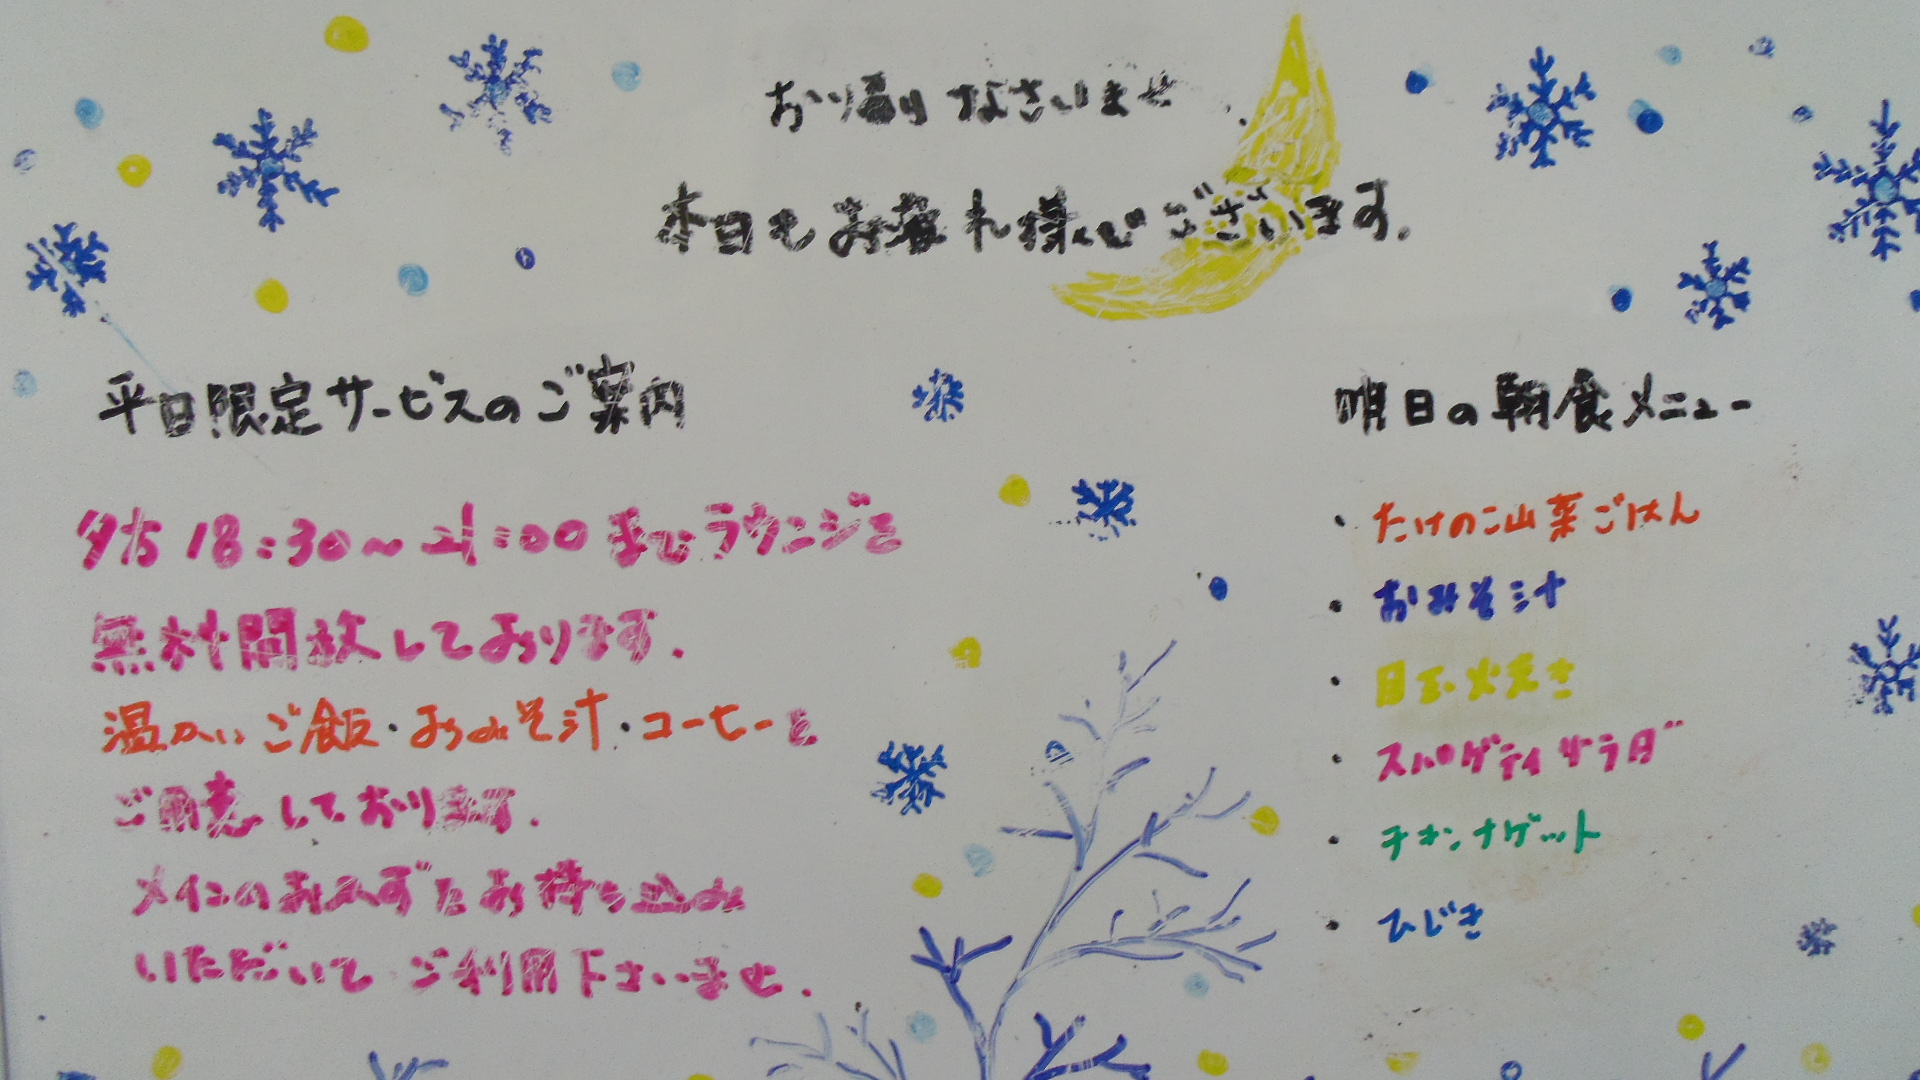 お帰りなさいませ.
本日もお疲れ様でございます.
平日限定サービスのご案内
夕方 18:30～21:00までラウンジを
無料開放しております.
温かいご飯・おみそ汁・コーヒーを
ご用意しております.
メインのおかずをお持ち込み
いただいて ご利用下さいませ.
明日の朝食メニュー
・たけのこ山菜ごはん
・おみそ汁
・目玉焼き
・スパゲティサラダ
・チキンナゲット
・ひじき